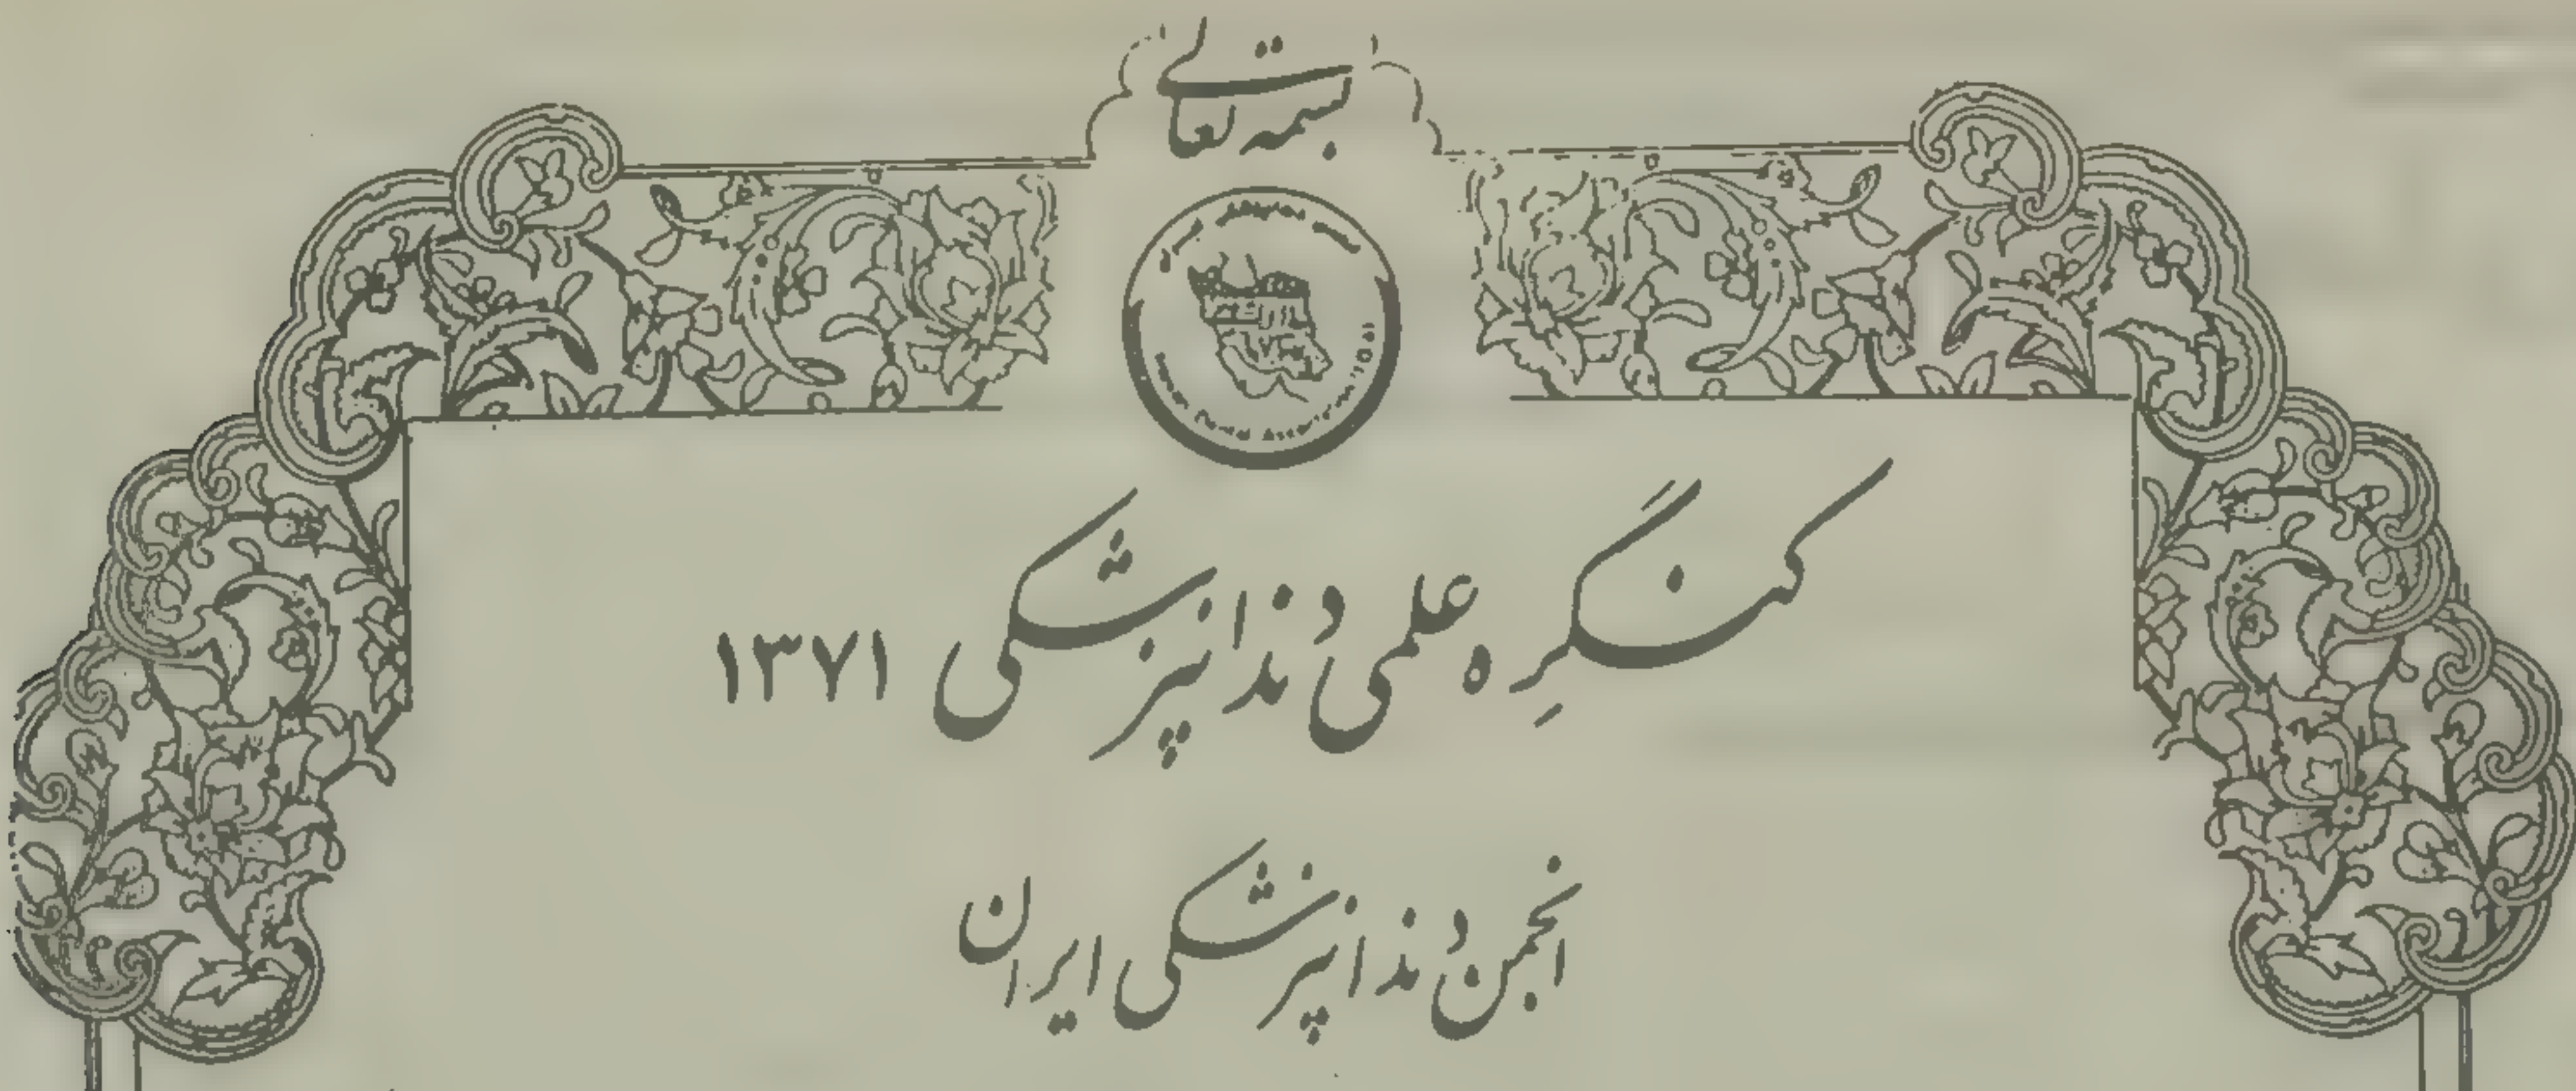 بسمه تعالی
کنگره علمی دندانپزشکی ۱۳۷۱
انجمن دندانپزشکی ایران